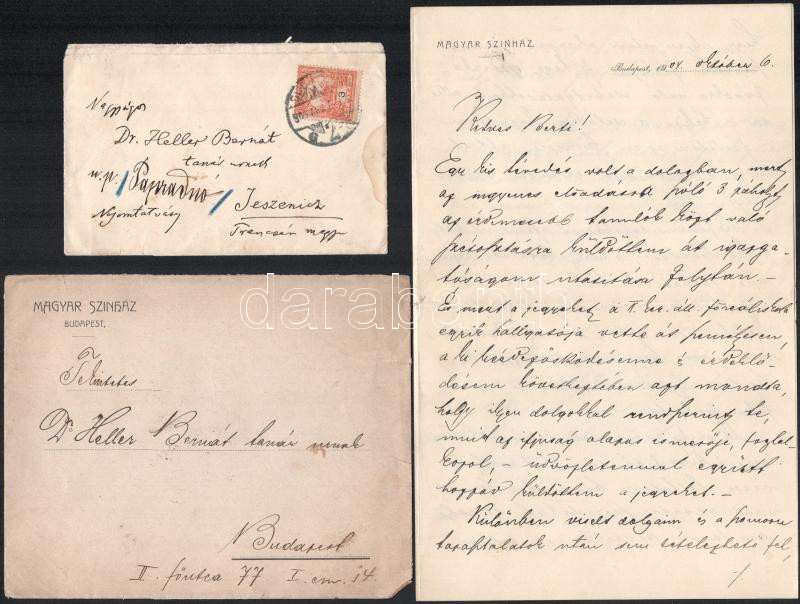 Nagyságos
Dr. Heller Bernát
tanár urnak
u.p. / Papradnó /
Nyomtatvány Jeszenicz
Trencsén megye
MAGYAR SZINHÁZ
BUDAPEST.
Tekintetes
Dr. Heller Bernát tanár urnak
Budapest
II. főutca 77 I. em. 14.
MAGYAR SZINHÁZ
Budapest, 1904. október 6.
Kedves Berti!
Egy kis tévedés volt a dologban, mert
az ingyenes előadásra szóló 3 páholyt
az érdemesebb tanulók közt való
szétosztásra küldöttem át igazga-
tóságom utasitása folytán. –
És mert a jegyeket a II. ker. áll. főreáliskola
egyik hallgatója vette át személyesen,
a ki kérdezősködésemre és érdeklő-
désem következtében azt mondta,
hogy ilyen dolgokkal rendszerint te,
mint az ifjuság alapos ismerője, foglal-
kozol, – üdvözletemmel együtt
hozzád küldöttem a jegyeket. –
Különben viselt dolgaim és a szomoru
tapasztalatok után sem tételezhető fel,
darabanth.com